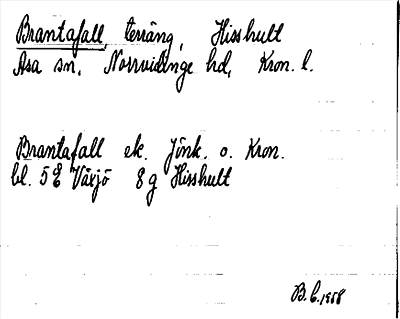 Brantafall, terräng, Hisshult
Asa sn, Norrvidinge hd, Kron. l.
Brantafall ek. Jönk. o. Kron.
bl. 5E Växjö 8g Hisshult
B. C. 1958